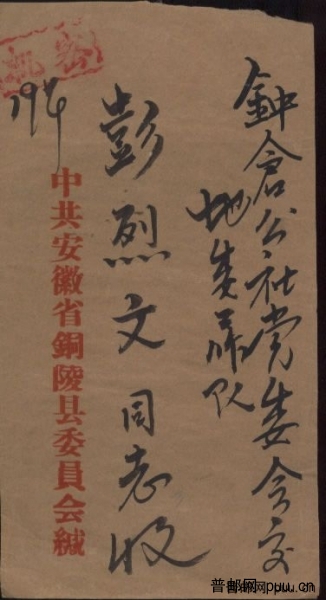 钟仓公社党委会交
地委
队
彭烈文同志收
中共安徽省銅陵县委員会缄
机密
普邮网 puu.cn